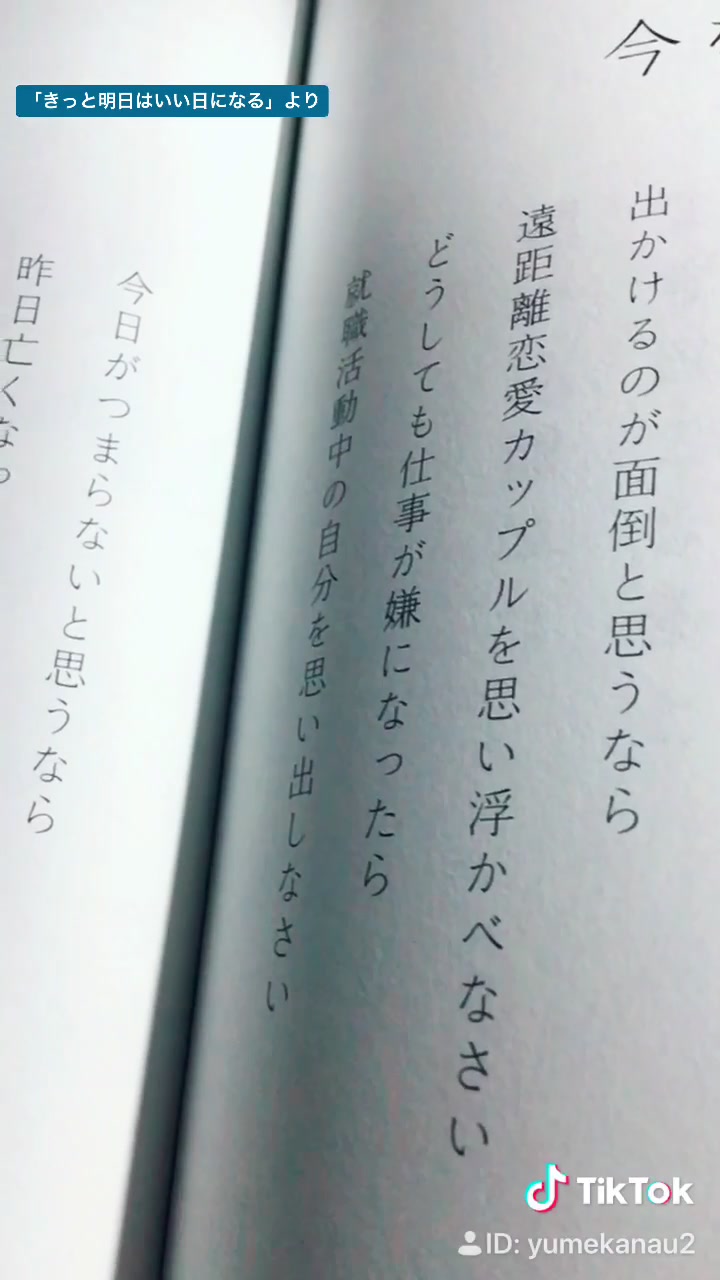 「きっと明日はいい日になる」より
今
出かけるのが面倒と思うなら
遠距離恋愛カップルを思い浮かべなさい
どうしても仕事が嫌になったら
就職活動中の自分を思い出しなさい
今日がつまらないと思うなら
昨日亡くなっ
TikTok
ID: yumekanau2